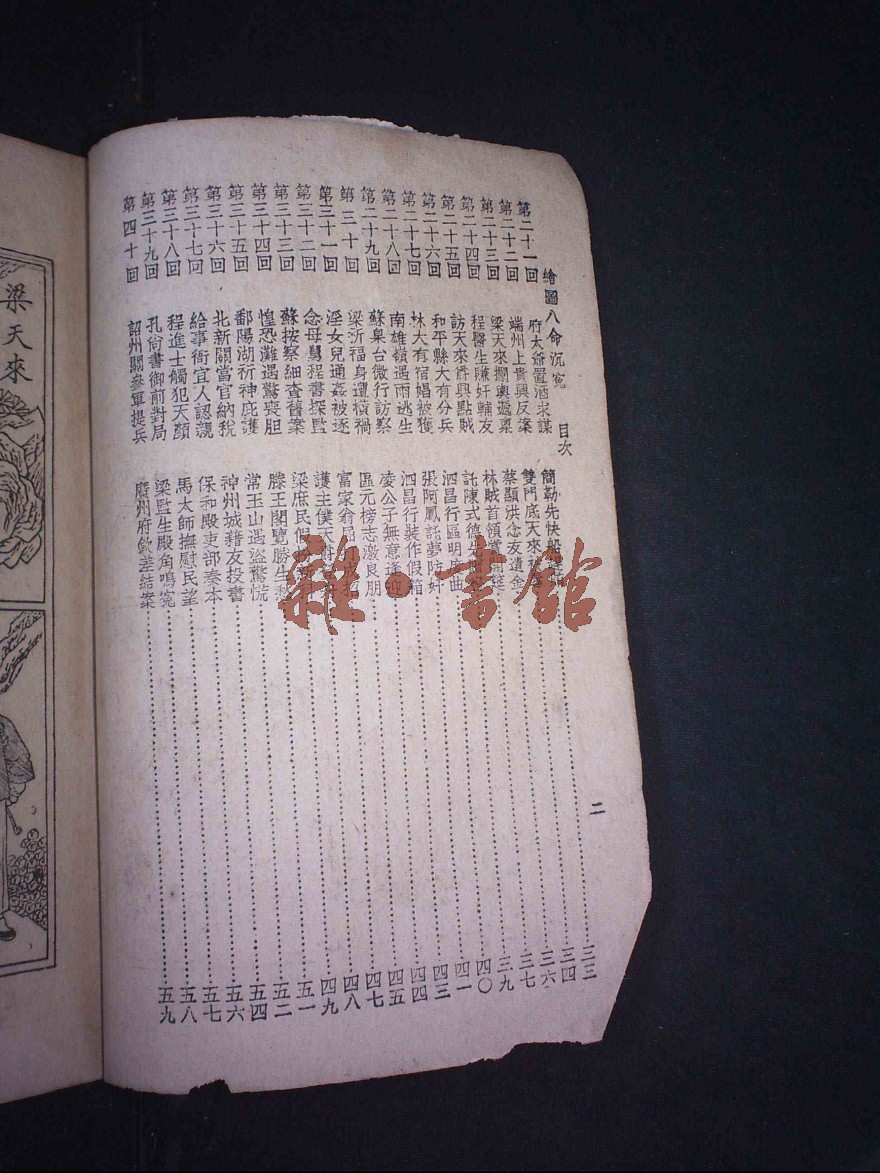 繪圖八命沉冤 目次 二
第二十一回 府太爺置酒求謀 簡勒先快船 三三
第二十二回 端州上貴興反案 雙門底天來 三四
第二十三回 梁天來攔輿遞稟 蔡顯洪念友遺金 三六
第二十四回 程醫生賺奸輔友 林賊首領 三七
第二十五回 訪天來爵興點賊 託陳式德 三九
第二十六回 和平縣大有分兵 泗昌行區明 曲 四〇
第二十七回 林大有宿娼被獲 泗昌行裝作假箱 四一
第二十八回 南雄嶺遇雨逃生 張阿鳳託夢防奸 四三
第二十九回 蘇臬台微行訪察 凌公子無意逢迎 四四
第三十回 梁祈福身遭橫禍 區元榜志激良朋 四五
第三十一回 淫女兒通姦被逐 富家翁 四七
第三十二回 念母舅程書探監 護主僕天 四八
第三十三回 蘇按察細查舊案 梁庶民假 四九
第三十四回 惶恐灘遇驚喪胆 滕王閣覽勝生 五一
第三十五回 鄱陽湖祈神庇護 常玉山遇盜驚慌 五二
第三十六回 北新關當官納稅 神州城藉友投書 五四
第三十七回 給事衙宜人認親 保和殿吏部奏本 五六
第三十八回 程進士觸犯天顏 馬太師撫慰民望 五七
第三十九回 孔尙書御前對局 梁監生殿角鳴寃 五八
第四十回 韶州關參軍提兵 廣州府欽差結案 五九
梁天來
雜·書館